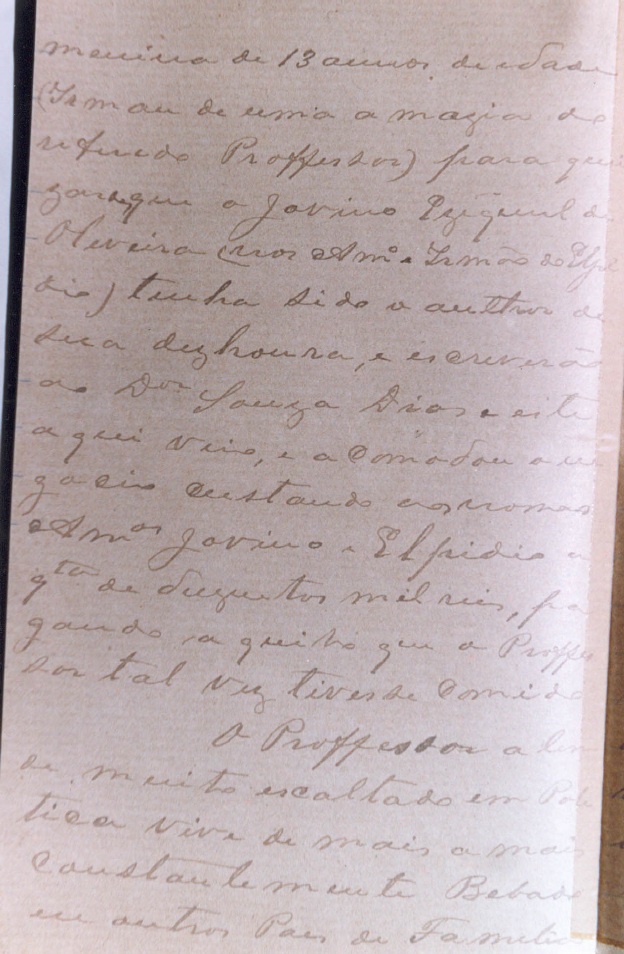 menina de 13 annos de edade
(Irman de uma a mazia do
referido Proffessor) para
que o Jovino Ezequiel de
Oliveira (nos Amº e Irmão do
dio) tenha sido o author de
sua dezhoura, e escreverão
ao Dor Souza Dias e este
a qui veio, e a Comodou o ne
gocio custando aos nossos
Amos Jovino e Elpidio a
qta de duzentos mil reis, pa
gando a quillo que o Proffes
sor tal vez tivesse Comido
O Proffessor a lem
de muito escaltado em Poli
tica vive de mais a mais
Constante mente Bebado
eu outros Paes de Familia